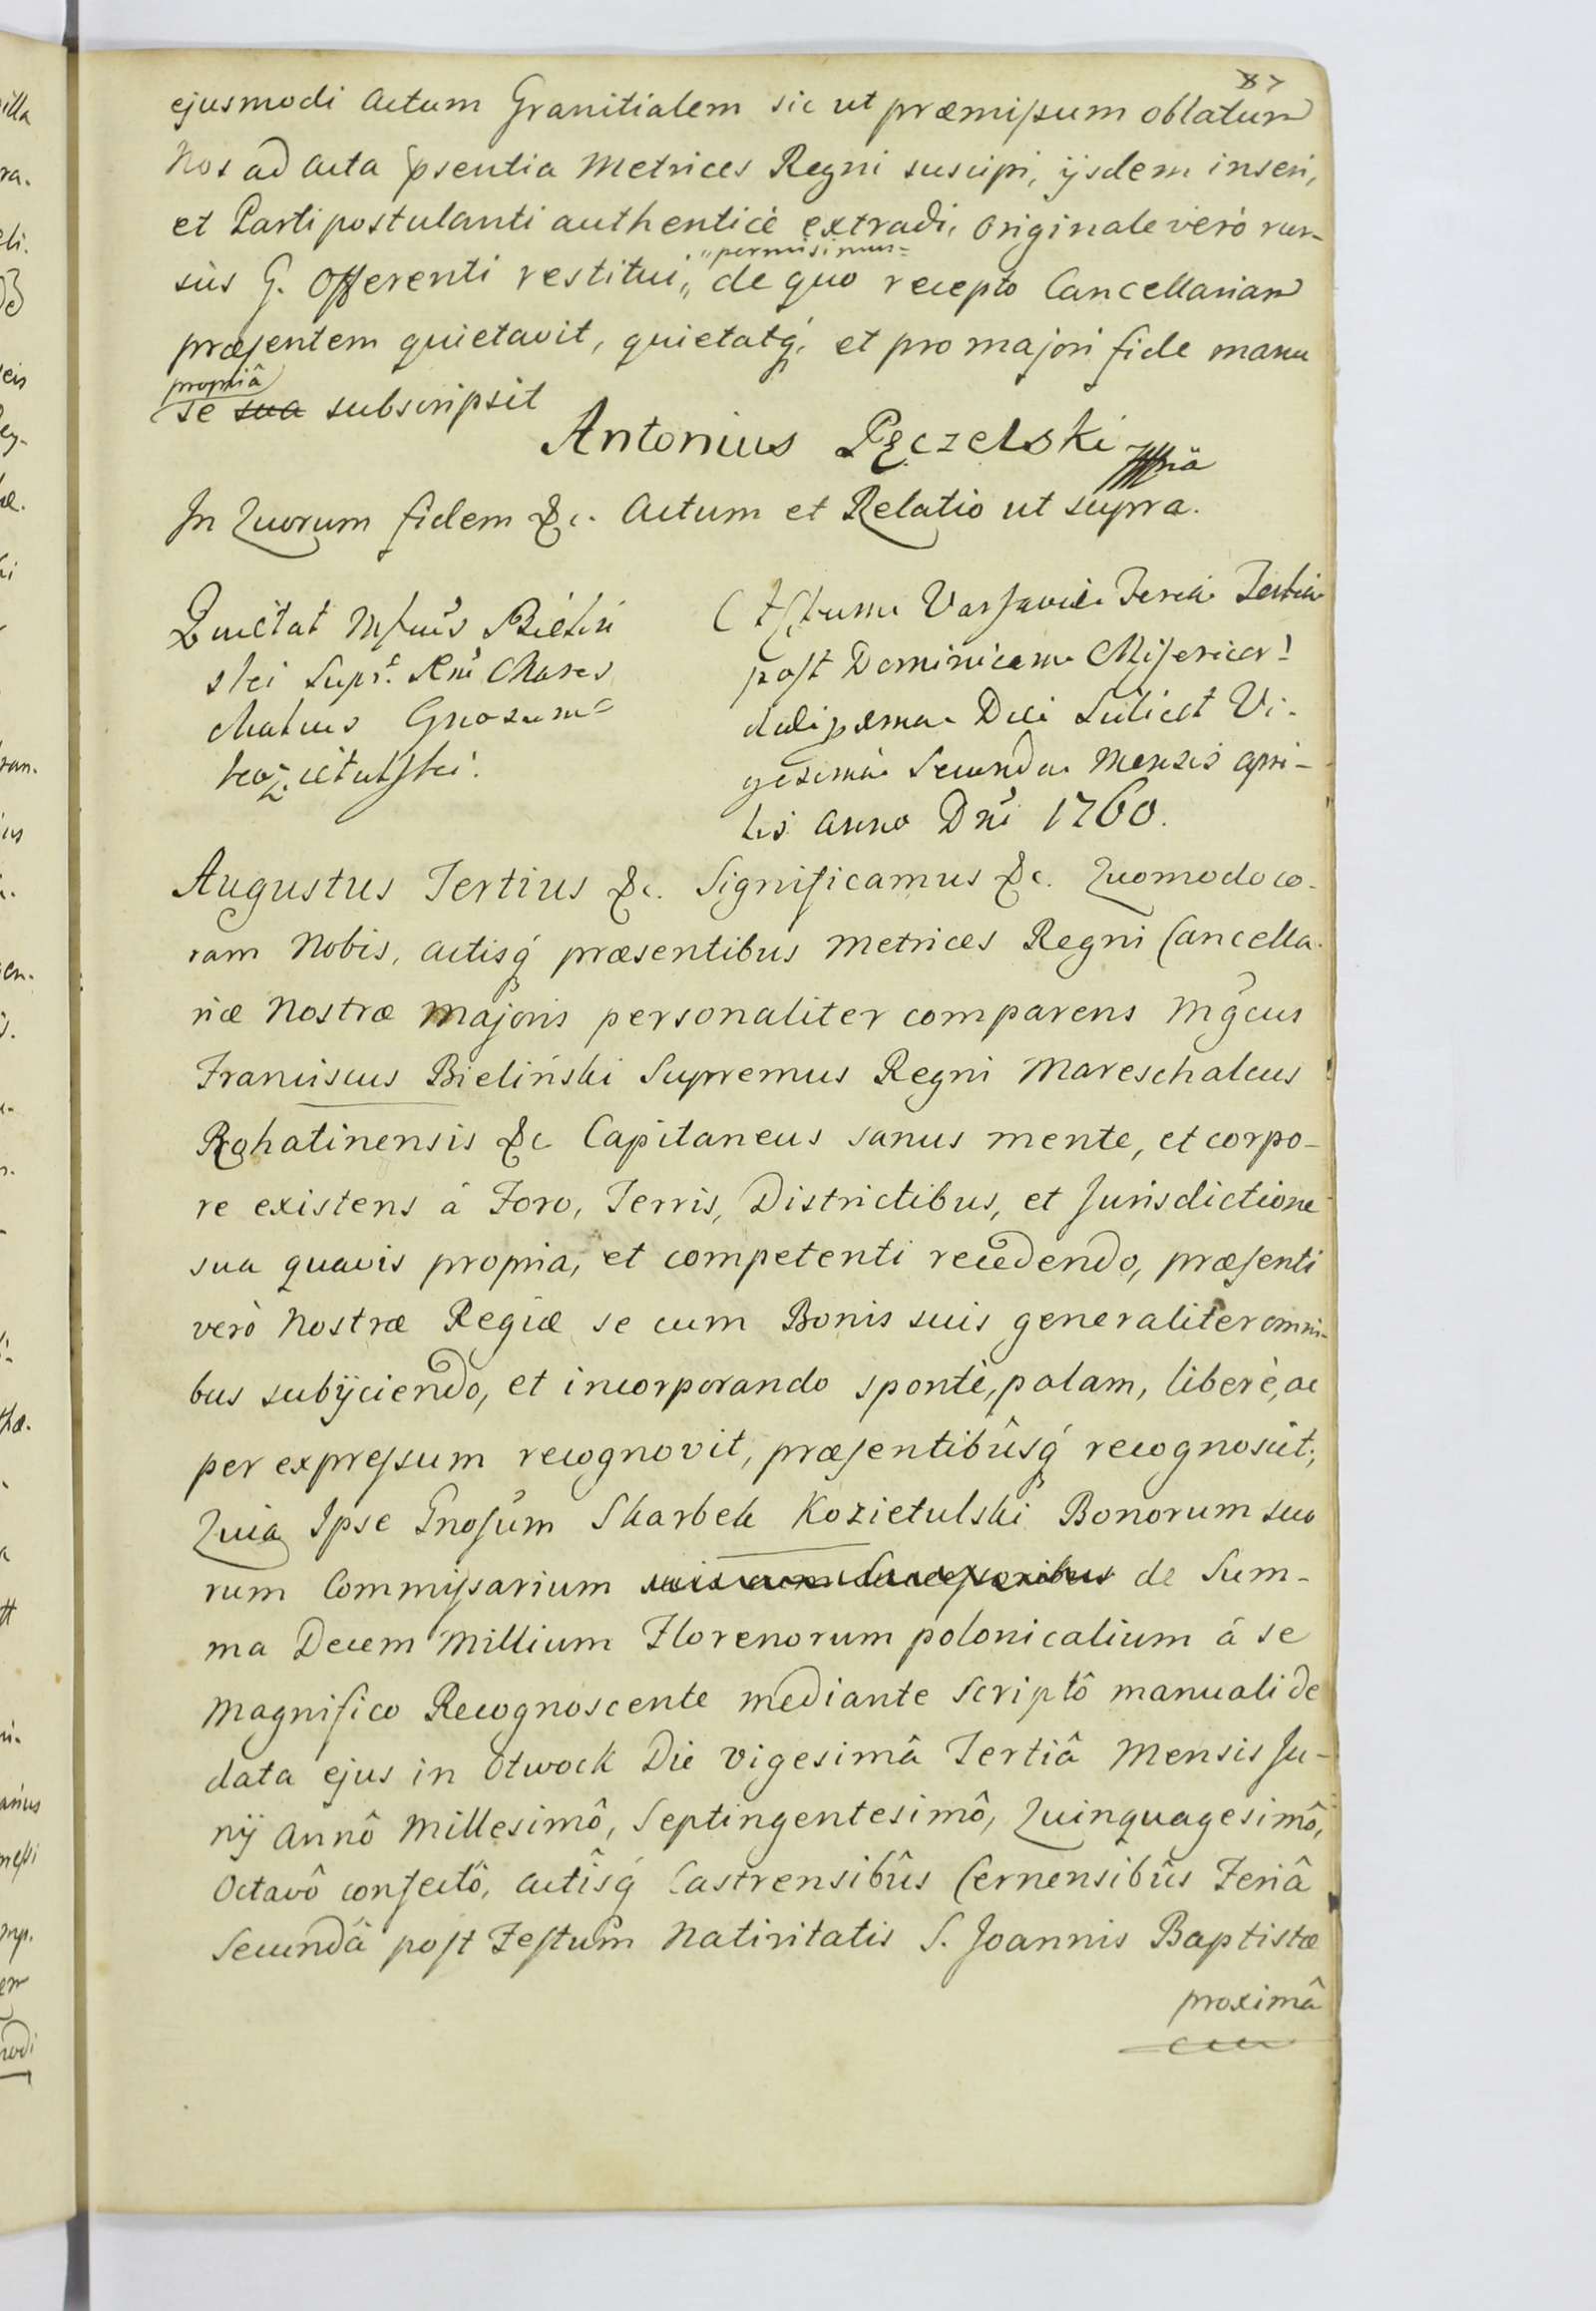 87
ejusmodi Actum Granitialem sic ut præmissum oblatum
Nos ad Acta pсentia Metrices Regni suscipi, ijsdem inseri,
et Parti postulanti authenticè extradi, Originale verò rur-
"permisimus=
sùs G. Offerenti restitui,, de quo recepto Cancellariam
præsentem quietavit, quietatq́, et pro majori fide manu
propriâ
se sua subscripsit
Antonius Pęczelski mpia
In Quorum fidem &c. Actum et Relatio ut supra.
Quietat Mfcus Bieliń
ski Supr. Rni Mares
chalcus Gnosum
Kozietulski.
Actum Varsaviæ Feria Tertia
post Dominicam Misericor:
dalipxma Die Scilicet Vi-
gesima Secunda Mensis Apri-
lis Anno Dni 1760.
Augustus Tertius &c. Significamus &c. Quomodo co-
ram Nobis, Actisq́ præsentibus Metrices Regni Cancella-
riæ Nostræ Majoris personaliter comparens Mgcus
Franciscus Bieliński Supremus Regni Mareschalcus
Rohatinensis &c Capitaneus sanus mente, et corpo-
re existens á Foro, Terris, Districtibus, et Jurisdictione
sua quavis propria, et competenti recedendo, præsenti
verò Nostræ Regiæ se cum Bonis suis generaliter omni-
bus subijciendo, et incorporando spontè, palam, liberè, ac
per expressum recognovit, præsentibûsq́ recognoscit;
Quia Ipse Gnosum Skarbek Kozietulski Bonorum suo
rum Commissarium suis cum Successoribus de Sum-
ma Decem Millium Florenorum polonicalium á se
Magnifico Recognoscente mediante Scriptô manuali de
data ejus in Otwock Die Vigesimâ Tertiâ Mensis Ju-
nij Annô Millesimô, Septingentesimô, Quinquagesimô,
Octavô confectô, Actîsq́ Castrensibûs Cernensibûs Feriâ
Secundâ post Festum Nativitatis S. Joannis Baptistæ
proximâ